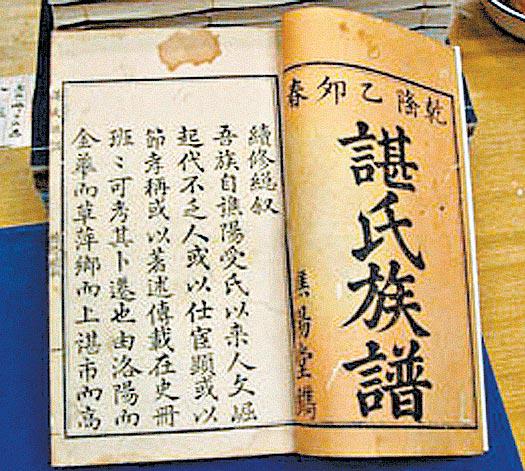 乾隆乙卯春
諶氏族譜
譙陽堂鐫
續修總叙
吾族自譙陽受氏以来人文崛
起代不乏人或以仕宦顯或以
節孝稱或以著述傳載在史冊
班〻可考其卜遷也由洛陽而
金華而草萍鄉而上湛市而高